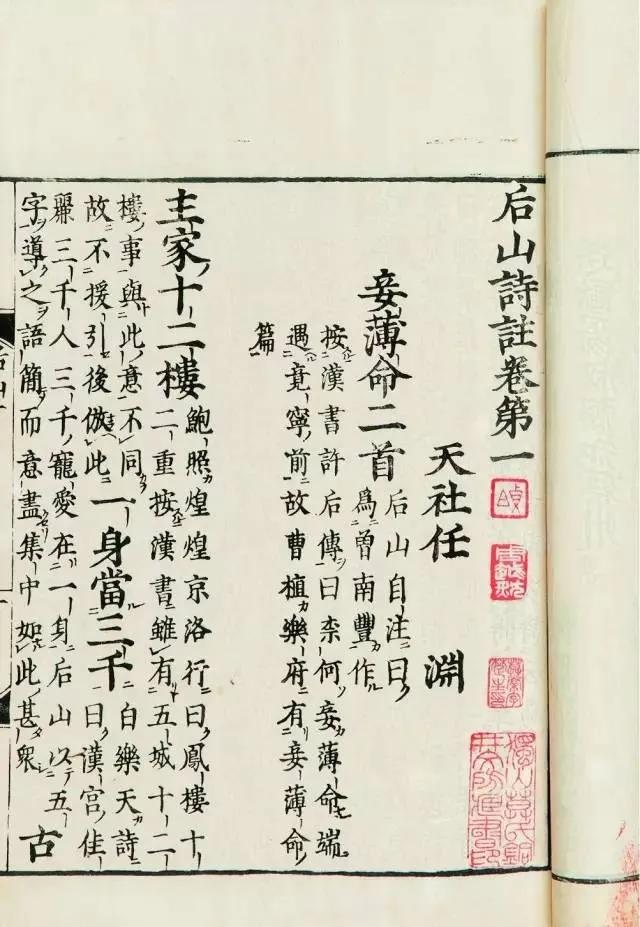 后山詩註卷第一
天社任 淵
妾薄命二首
后山自注曰
為曾南豐作
按漢書許后傳曰柰何妾薄命端
遇竟寧前故曹植樂府有妾薄命
篇
主家十二樓
鮑照煌煌京洛行曰鳳樓十
二重按漢書雖有五城十二
樓事與此意不同
故不援引後倣此
一身當三千
白樂天詩
曰漢宮佳
麗三千人三千寵愛在一身后山以五
字導之語簡而意盡集中如此甚衆
古
獨山莫氏銅
井文房藏書印